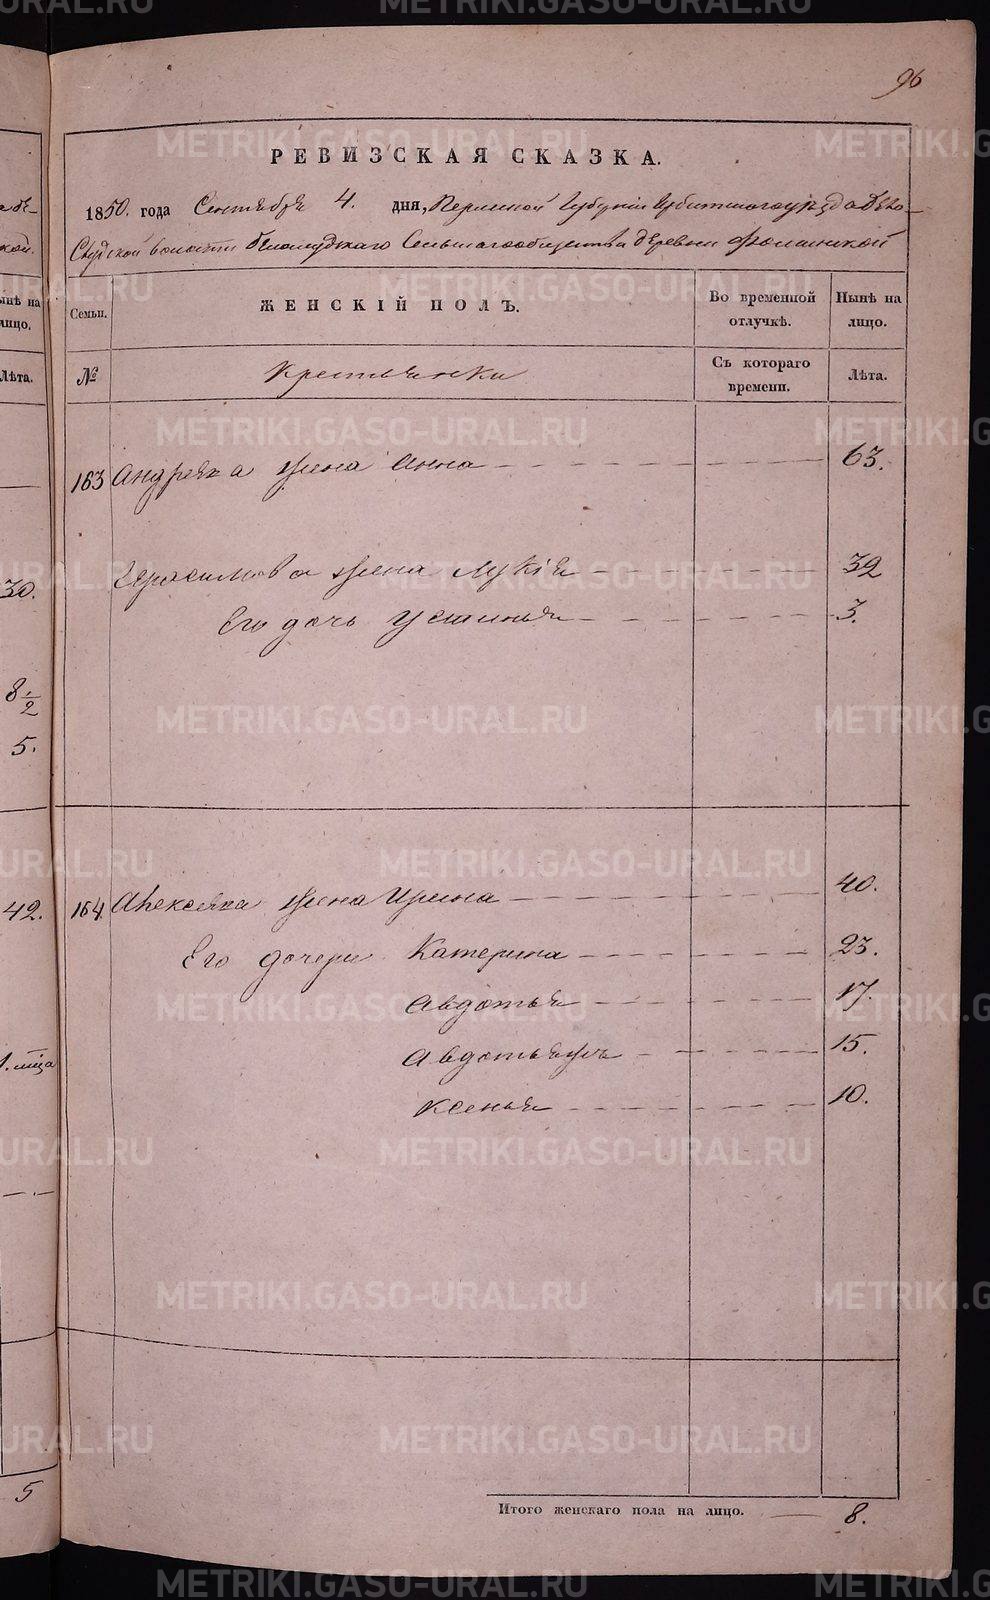 96
РЕВИЗСКАЯ СКАЗКА.
1850. года Сентября 4. дня, Пермской Губернии Ирбитскаго уезда Бело-
Слудской волости Белослудскаго Сельскаго общества деревни Фоминской
Семьи.
ЖЕНСКІЙ ПОЛЪ.
Во временной отлучкѣ.
Нынѣ на лицо.
№
Крестьянки
Съ котораго времени.
Лѣта.
163 Андрея жена Анна 63.
Герасимова жена Лукія 32
Его дочь Устинья 3.
164 Алексѣя жена Ирина 40.
Его дочери Катерина 23.
Авдотья 17.
Авдотья 15.
Ксенья 10.
Итого женскаго пола на лицо. 8.
ынѣ на
лицо.
Лѣта.
30.
8 1/2
5.
42.
5
METRIKI.GASO-URAL.RU